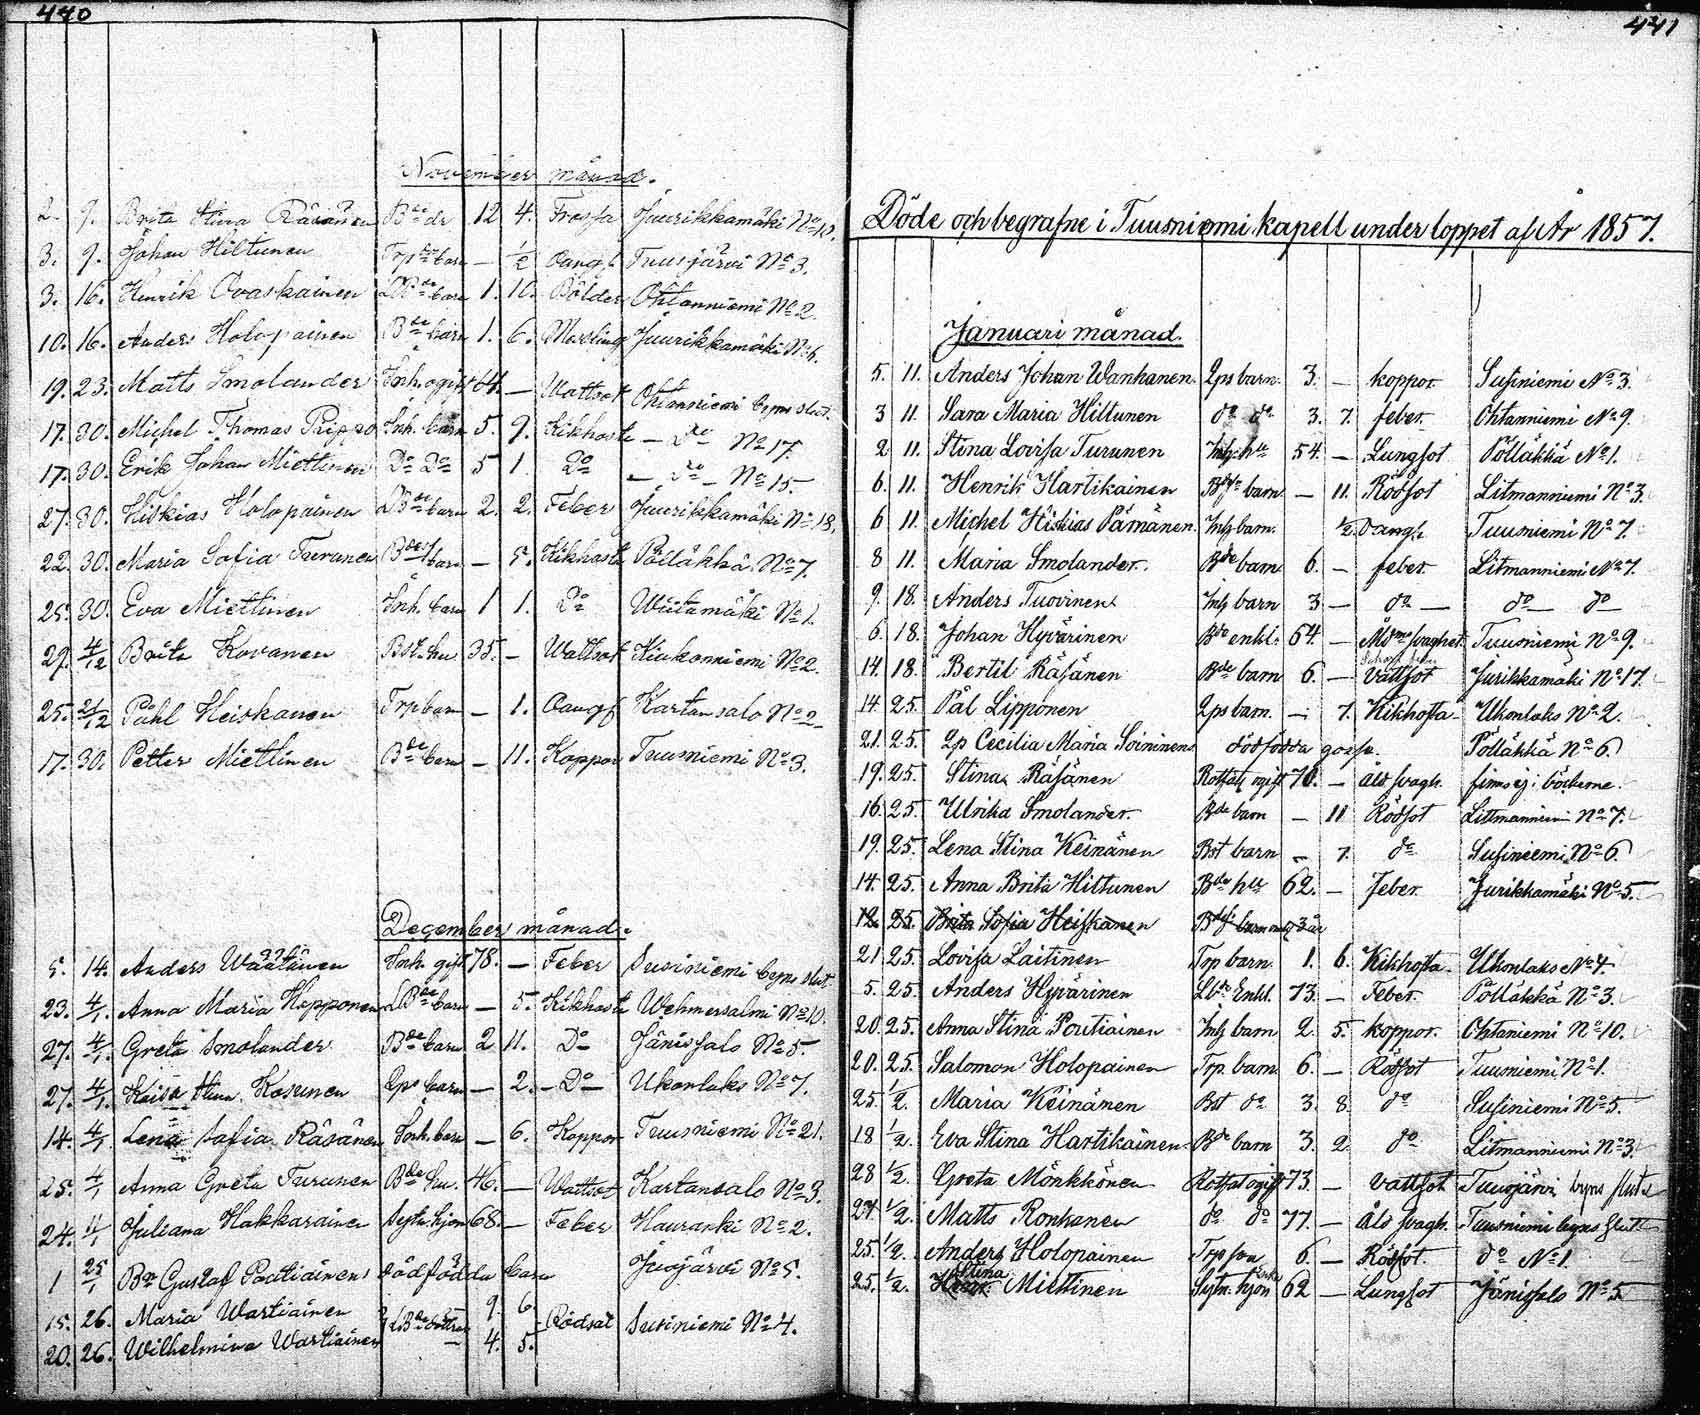 440
November månad.
2. 9. Brita Stina Räsänen Bde dr 12 4. Frossa Juurikkamäki No 10.
3. 9. Johan Hiltunen Trp barn — ½ Oangf. Tuusjärvi No 3.
3. 16. Henrik Ovaskainen LBde barn 1. 10. Bölder Ohtanniemi No 2.
10. 16. Anders Holopainen Bde barn 1. 6. Messling Juurikkamäki No 6.
19. 23. Matts Smolander Inh. ogift 64. — Wattsot Ohtanniemi byns slut.
17. 30. Michel Thomas Prippo Inh. barn 5. 9. Kikhosta — Do No 17.
17. 30. Erik Johan Miettinen Do Do 5 1. Do — Do — No 15.
27. 30. Hiskias Holopainen LBde barn 2. 2. Feber Juurikkamäki No 18.
22. 30. Maria Sofia Turunen Bdes barn — 5. Kikhosta Pölläkkä No 7.
25. 30. Eva Miettinen Inh. barn 1 1. Do Wiitamäki No 1.
29. 4/12 Brita Kovanen Bst. hu 35. — Wattsot Kiukonniemi No 2.
25. 21/12 Påhl Heiskanen Trp barn — 1. Oangf Kartansalo No 2
17. 30. Petter Miettinen Bde barn — 11. Koppor Tuusniemi No 3.
December månad.
5. 14. Anders Väätäinen Inh. gift 78. — Feber Susiniemi byns slut.
23. 4/1. Anna Maria Hepponen LBde barn — 5. Kikhosta Wehmersalmi No 10.
27. 4/1. Greta Smolander Bde barn 2 11. Do Jänissalo No 5.
27. 4/1. Kaisa Stina Kosunen Lps barn — 2. — Do — Ukonlaks No 7.
14. 4/1. Lena Sofia Räsänen Inh. barn — 6. Koppor Tuusniemi No 21.
25. 4/1 Anna Greta Turunen Bde hu. 46. — Wattsot Kartansalo No 3.
24. 4/1 Juliana Hakkarainen Sytn. hjon 68. — Feber Hauranki No 2.
1 25/1 Bde Gustaf Pautiainens dödfödda barn Juojärvi No 5.
15. 26. Maria Wartiainen LBde döttrar 9. 6. Rödsot Susiniemi No 4.
20. 26. Wilhelmina Wartiainen — 4. 5.
441
Döde och begrafne i Tuusniemi kapell under loppet af År 1857.
Januari månad.
5. 11. Anders Johan Wanhanen. Lps barn. 3. — koppor. Susiniemi No 3.
3 11. Sara Maria Hiltunen do do 3. 7. feber. Ohtanniemi No 9.
2 11. Stina Lovisa Turunen Inh: hu 54. — Lungsot Pölläkkä No 1.
6. 11. Henrik Hartikainen Bde barn — 11. Rödsot Litmanniemi No 3.
6 11. Michel Hiskias Pämänen. Inh barn. ½. Oangf. Tuusniemi No 7.
8 11. Maria Smolander. Bde barn 6. — feber. Litmanniemi No 7.
9. 18. Anders Tuovinen Inh barn 3 — do — do — do
6. 18. Johan Hyvärinen Bde enkl. 64. — Åldms svaghet. Tuusniemi No 9.
14. 18. Bertil Räsänen Bde barn 6. — vattsot Jurikkamäki No 17.
14. 25. Pål Lipponen Lps barn. — 7. Kikhosta Ukonlaks No 2.
21. 25. Lp Cecilia Maria Soininens dödfödda gosse. Pölläkkä No 6.
19. 25. Stina Räsänen Rotfatt ogift 70. — åld svagh. finns ej i böckerne.
16. 25. Ulrika Smolander. Bde barn — 11 Rödsot Littmanniemi No 7.
19. 25. Lena Stina Keinänen Bst barn — 7. do Susiniemi No 6.
14. 25. Anna Brita Hiltunen Bde hu 62. — Feber. Jurikkamäki No 5.
12. 25. Brita Sofia Heiskanen
21 25. Lovisa Laitinen Trp barn. 1. 6. Kikhosta. Ukonlaks No 4.
5. 25. Anders Hyvärinen Lbde Enkl. 73. — Feber. Pölläkkä No 3.
20. 25. Anna Stina Poutiainen Inh barn 2. 5. koppor. Ohtaniemi No 10.
20. 25. Salomon Holopainen Trp. barn 6. — Rödsot Tuusniemi No 1.
25. ½. Maria Keinänen Bst do 3. 8. do Susiniemi No 5.
18 ½. Eva Stina Hartikainen Bde barn 3. 2. do Litmanniemi No 3.
28 ½. Greta Mönkkönen Rotfat ogift 73. — vattsot Tuusjärvi byns slut
27. ½. Matts Ronkanen do do 77. — åld svagh. Tuusniemi byns slutt
25. ½. Anders Holopainen Trp son 6. — Rödsot. do No 1.
25. ½. Stina Miettinen Sytn. hjon enka 62 — Lungsot Jänissalo No 5